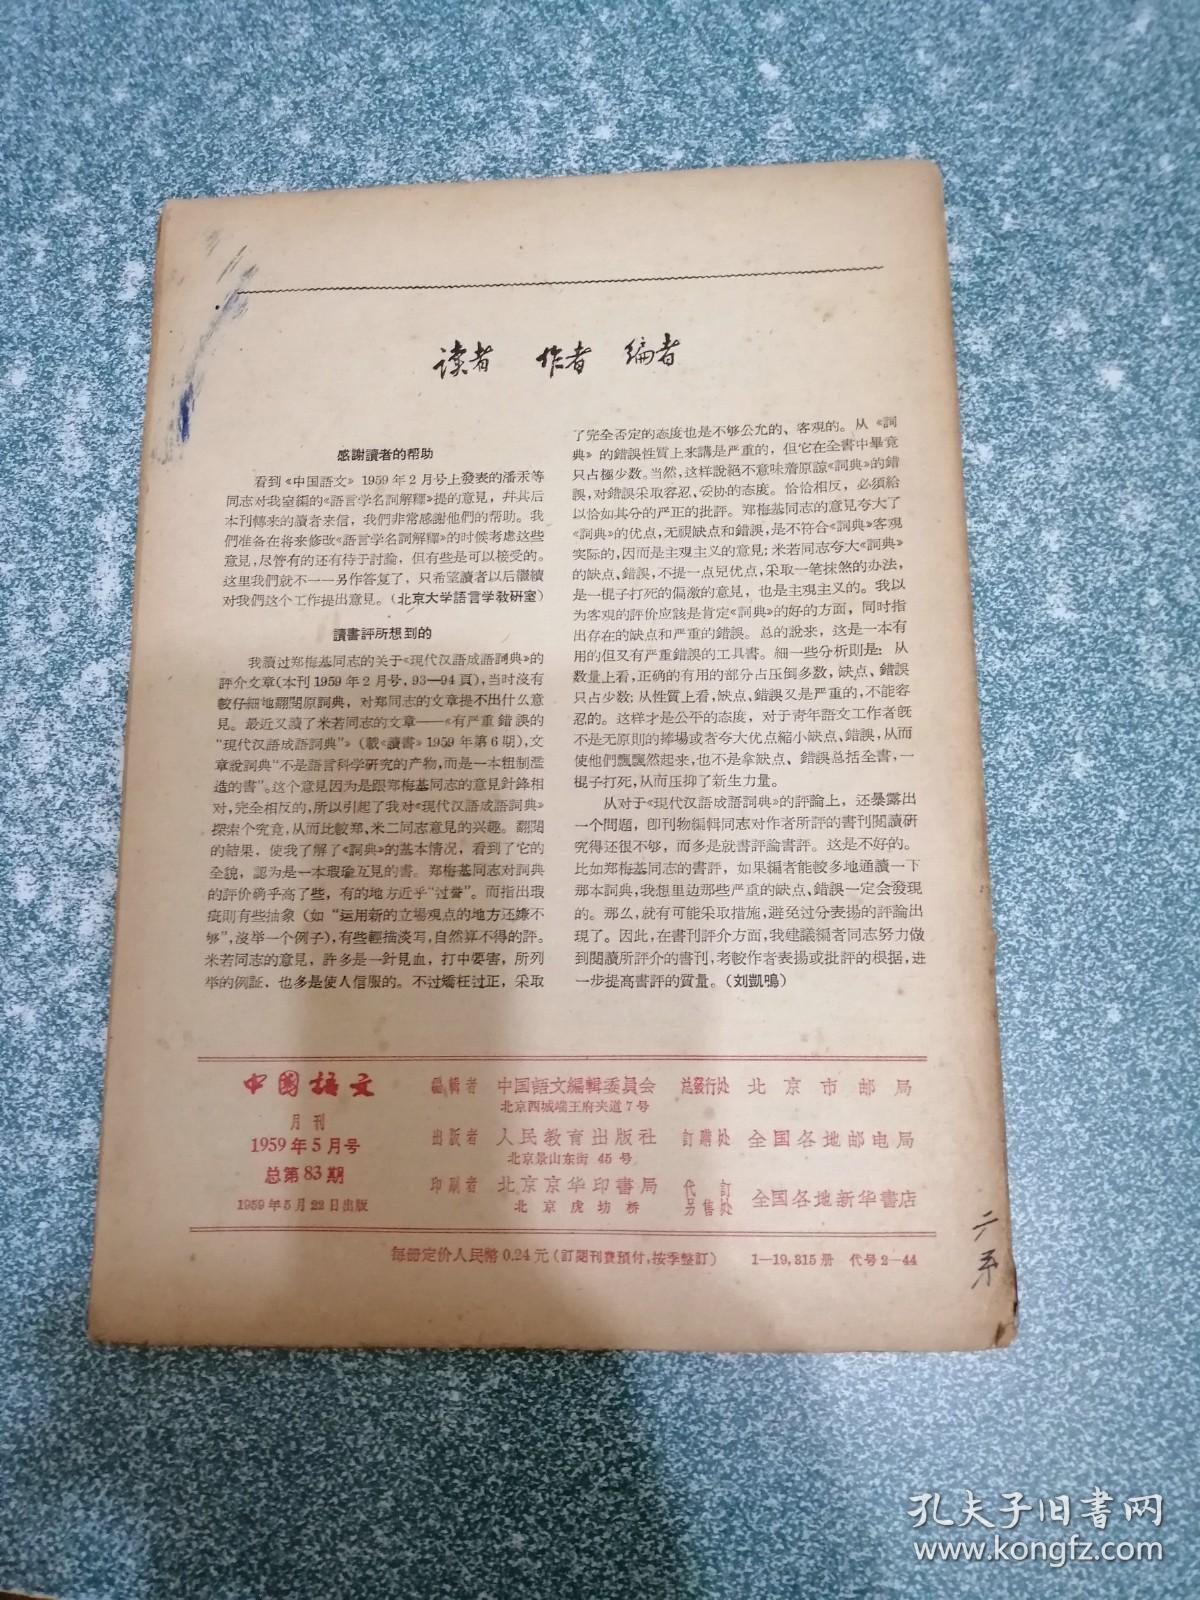 读者 作者 编者
感謝讀者的帮助
看到《中国語文》1959年2月号上發表的潘汞等
同志对我室編的《語言学名詞解釋》提的意見，幷其后
本刊傳来的讀者来信，我們非常感謝他們的帮助。我
們准备在将来修改《語言学名詞解釋》的时候考虑这些
意見，尽管有的还有待于討論，但有些是可以接受的。
这里我們就不一一另作答复了，只希望讀者以后繼續
对我們这个工作提出意見。（北京大学語言学敎硏室）
讀書評所想到的
我讀过郑梅基同志的关于《現代汉語成語詞典》的
評介文章（本刊1959年2月号，93—94頁），当时沒有
較仔細地翻閱原詞典，对郑同志的文章提不出什么意
見。最近又讀了米若同志的文章——《有严重錯誤的
“現代汉語成語詞典”》（載《讀書》1959年第6期），文
章說詞典“不是語言科学研究的产物，而是一本粗制濫
造的書”。这个意見因为是跟郑梅基同志的意見針鋒相
对，完全相反的，所以引起了我对《現代汉語成語詞典》
探索个究竟，从而比較郑、米二同志意見的兴趣。翻閱
的結果，使我了解了《詞典》的基本情况，看到了它的
全貌，認为是一本瑕瑜互見的書。郑梅基同志对詞典
的評价确乎高了些，有的地方近乎“过誉”。而指出瑕
疵則有些抽象（如“运用新的立場观点的地方还嫌不
够”，沒举一个例子），有些輕描淡写，自然算不得的評。
米若同志的意見，許多是一針見血，打中要害，所列
举的例証，也多是使人信服的。不过矯枉过正，采取
了完全否定的态度也是不够公允的、客观的。从《詞
典》的錯誤性質上来講是严重的，但它在全書中畢竟
只占極少数。当然，这样說絕不意味着原諒《詞典》的錯
誤，对錯誤采取容忍、妥协的态度。恰恰相反，必須給
以恰如其分的严正的批評。郑梅基同志的意見夸大了
《詞典》的优点，无視缺点和錯誤，是不符合《詞典》客观
实际的，因而是主观主义的意見；米若同志夸大《詞典》
的缺点、錯誤，不提一点兒优点，采取一笔抹煞的办法，
是一棍子打死的偏激的意見，也是主观主义的。我以
为客观的評价应該是肯定《詞典》的好的方面，同时指
出存在的缺点和严重的錯誤。总的說来，这是一本有
用的但又有严重錯誤的工具書。細一些分析則是：从
数量上看，正确的有用的部分占压倒多数，缺点、錯誤
只占少数；从性質上看，缺点、錯誤又是严重的，不能容
忍的。这样才是公平的态度，对于青年語文工作者旣
不是无原則的捧場或者夸大优点縮小缺点、錯誤，从而
使他們飄飄然起来，也不是拿缺点、錯誤总括全書，一
棍子打死，从而压抑了新生力量。
从对于《現代汉語成語詞典》的評論上，还暴露出
一个問題，卽刊物編輯同志对作者所評的書刊閱讀研
究得还很不够，而多是就書評論書評。这是不好的。
比如郑梅基同志的書評，如果編者能較多地通讀一下
那本詞典，我想里边那些严重的缺点、錯誤一定会發現
的。那么，就有可能采取措施，避免过分表揚的評論出
現了。因此，在書刊評介方面，我建議編者同志努力做
到閱讀所評介的書刊，考較作者表揚或批評的根据，进
一步提高書評的質量。（刘凱鳴）
中國語文
月刊
1959年5月号
总第83期
1959年5月22日出版
編輯者 中国語文編輯委員会
北京西城端王府夹道7号
出版者 人民教育出版社
北京景山东街45号
印刷者 北京京华印書局
北京虎坊桥
总發行处 北京市邮局
訂購处 全国各地邮电局
代訂另售处 全国各地新华書店
每冊定价人民幣0.24元（訂閱刊費預付，按季整訂） 1—19,315册 代号2—44
孔夫子旧書网
www.kongfz.com